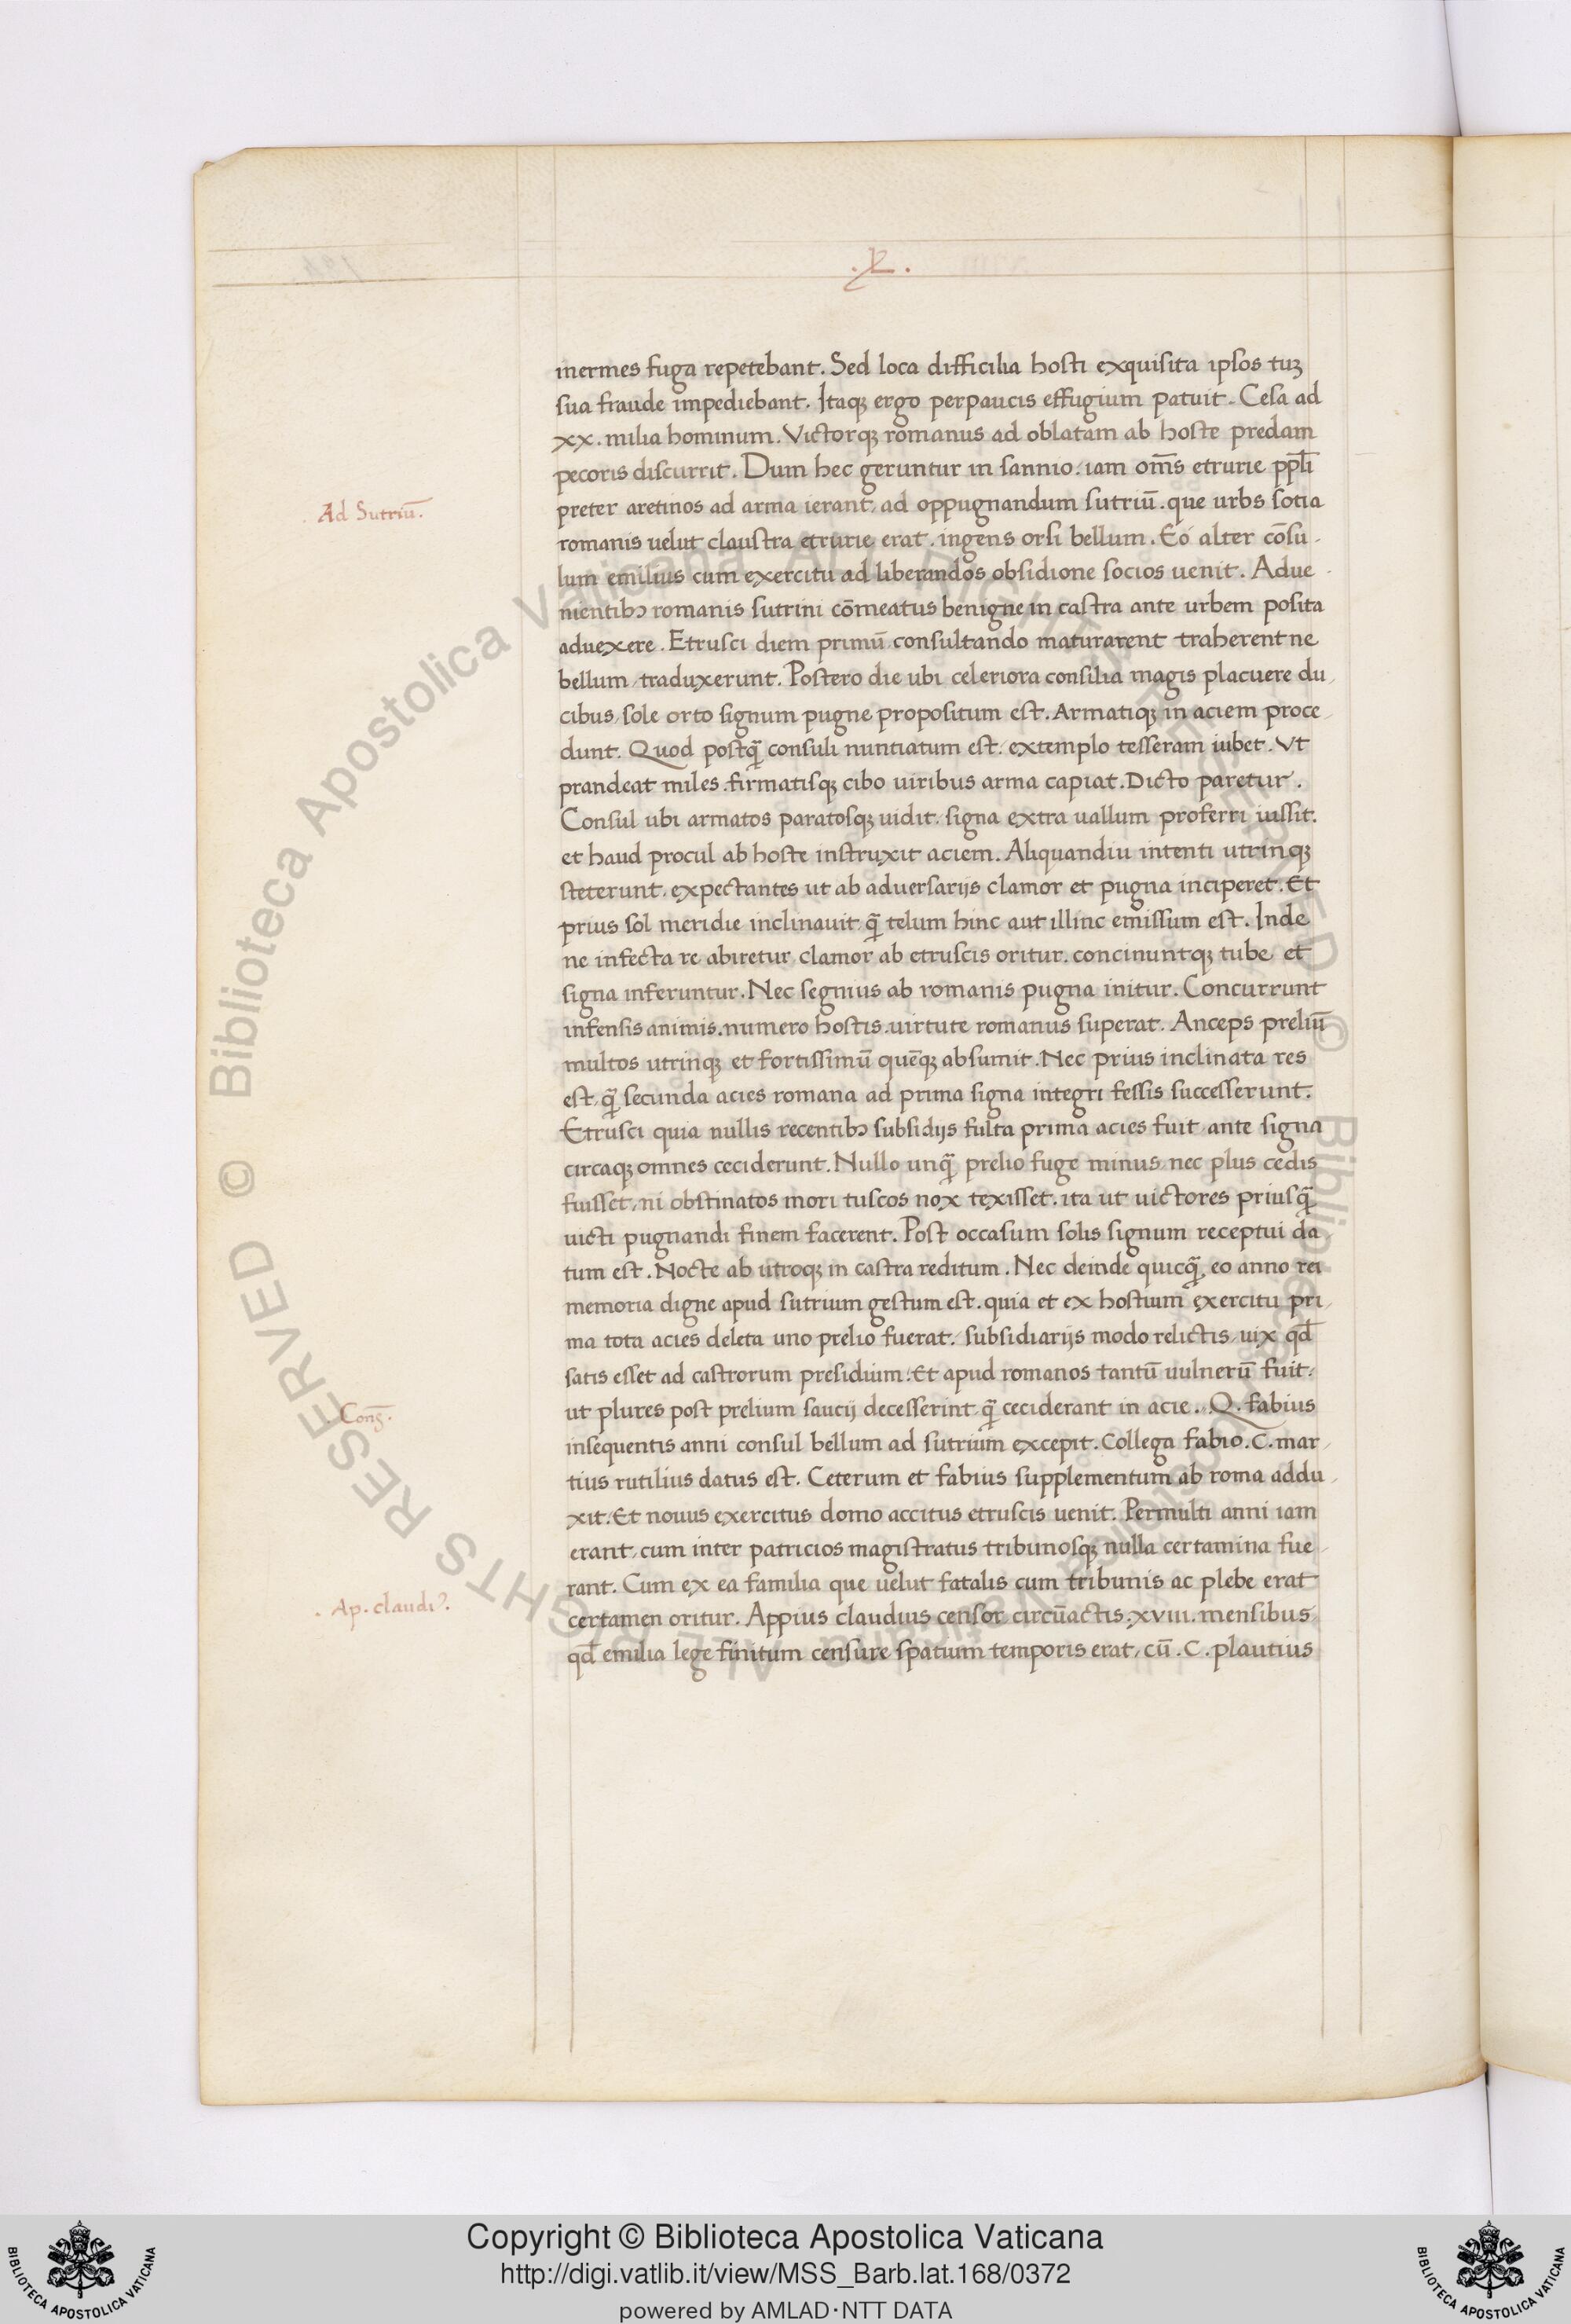 .L.
inermes fuga repetebant. Sed loca difficilia hosti exquisita ipsos tuꝫ
sua fraude impediebant. Itaqꝫ ergo perpaucis effugium patuit. Cesa ad
xx. milia hominum. Victorqꝫ romanus ad oblatam ab hoste predam
pecoris discurrit. Dum hec geruntur in sannio. iam om̄s etrurie pp̄li
Ad Sutriū.
preter aretinos ad arma ierant, ad oppugnandum sutriū. que urbs sotia
romanis uelut claustra etrurie erat. ingens orsi bellum. Eo alter cōsu-
lum emilius cum exercitu ad liberandos obsidione socios uenit. Adue-
nientibꝯ romanis sutrini cōmeatus benigne in castra ante urbem posita
aduexere. Etrusci diem primū consultando maturarent traherent ne
bellum, traduxerunt. Postero die ubi celeriora consilia magis placuere du-
cibus, sole orto signum pugne propositum est. Armatiqꝫ in aciem proce-
dunt. Quod postq̄ consuli nuntiatum est. extemplo tesseram iubet. Vt
prandeat miles. firmatisqꝫ cibo uiribus arma capiat. Dicto paretur.
Consul ubi armatos paratosqꝫ uidit. signa extra uallum proferri iussit.
et haud procul ab hoste instruxit aciem. Aliquandiu intenti utrinqꝫ
steterunt. expectantes ut ab aduersarijs clamor et pugna inciperet. Et
prius sol meridie inclinauit, q̄ telum hinc aut illinc emissum est. Inde
ne infecta re abiretur clamor ab etruscis oritur. concinuntqꝫ tube, et
signa inferuntur. Nec segnius ab romanis pugna initur. Concurrunt
infensis animis. numero hostis. uirtute romanus superat. Anceps preliū
multos utrinqꝫ et fortissimū quēqꝫ absumit. Nec prius inclinata res
est, q̄ secunda acies romana ad prima signa integri fessis successerunt.
Etrusci quia nullis recentibꝯ subsidijs fulta prima acies fuit, ante signa
circaqꝫ omnes ceciderunt. Nullo unq̄ prelio fuge minus, nec plus cedis
fuisset, ni obstinatos mori tuscos nox texisset. ita ut uictores priusq̄
uicti pugnandi finem facerent. Post occasum solis signum receptui da-
tum est. Nocte ab utroqꝫ in castra reditum. Nec deinde quicq̄, eo anno rei
memoria digne apud sutrium gestum est. quia et ex hostium exercitu pri-
ma tota acies deleta uno prelio fuerat. subsidiarijs modo relictis, uix qd̄
satis esset ad castrorum presidium. Et apud romanos tantū uulnerū fuit.
.Conꝫ.
ut plures post prelium saucij decesserint, q̄ ceciderant in acie. Q. fabius
insequentis anni consul bellum ad sutrium excepit. Collega fabio. C. mar-
tius rutilius datus est. Ceterum et fabius supplementum ab roma addu-
xit. Et nouus exercitus domo accitus etruscis uenit. Permulti anni iam
erant, cum inter patricios magistratus tribunosqꝫ nulla certamina fue-
rant. Cum ex ea familia que uelut fatalis cum tribunis ac plebe erat
. Ap. claudiꝰ.
certamen oritur. Appius claudius censor, circūactis. xviii. mensibus,
qd̄ emilia lege finitum censure spatium temporis erat, cū. C. plautius
© Biblioteca Apostolica Vaticana ALL RIGHTS RESERVED
Copyright © Biblioteca Apostolica Vaticana
http://digi.vatlib.it/view/MSS_Barb.lat.168/0372
powered by AMLAD·NTT DATA
BIBLIOTECA APOSTOLICA VATICANA
BIBLIOTECA APOSTOLICA VATICANA